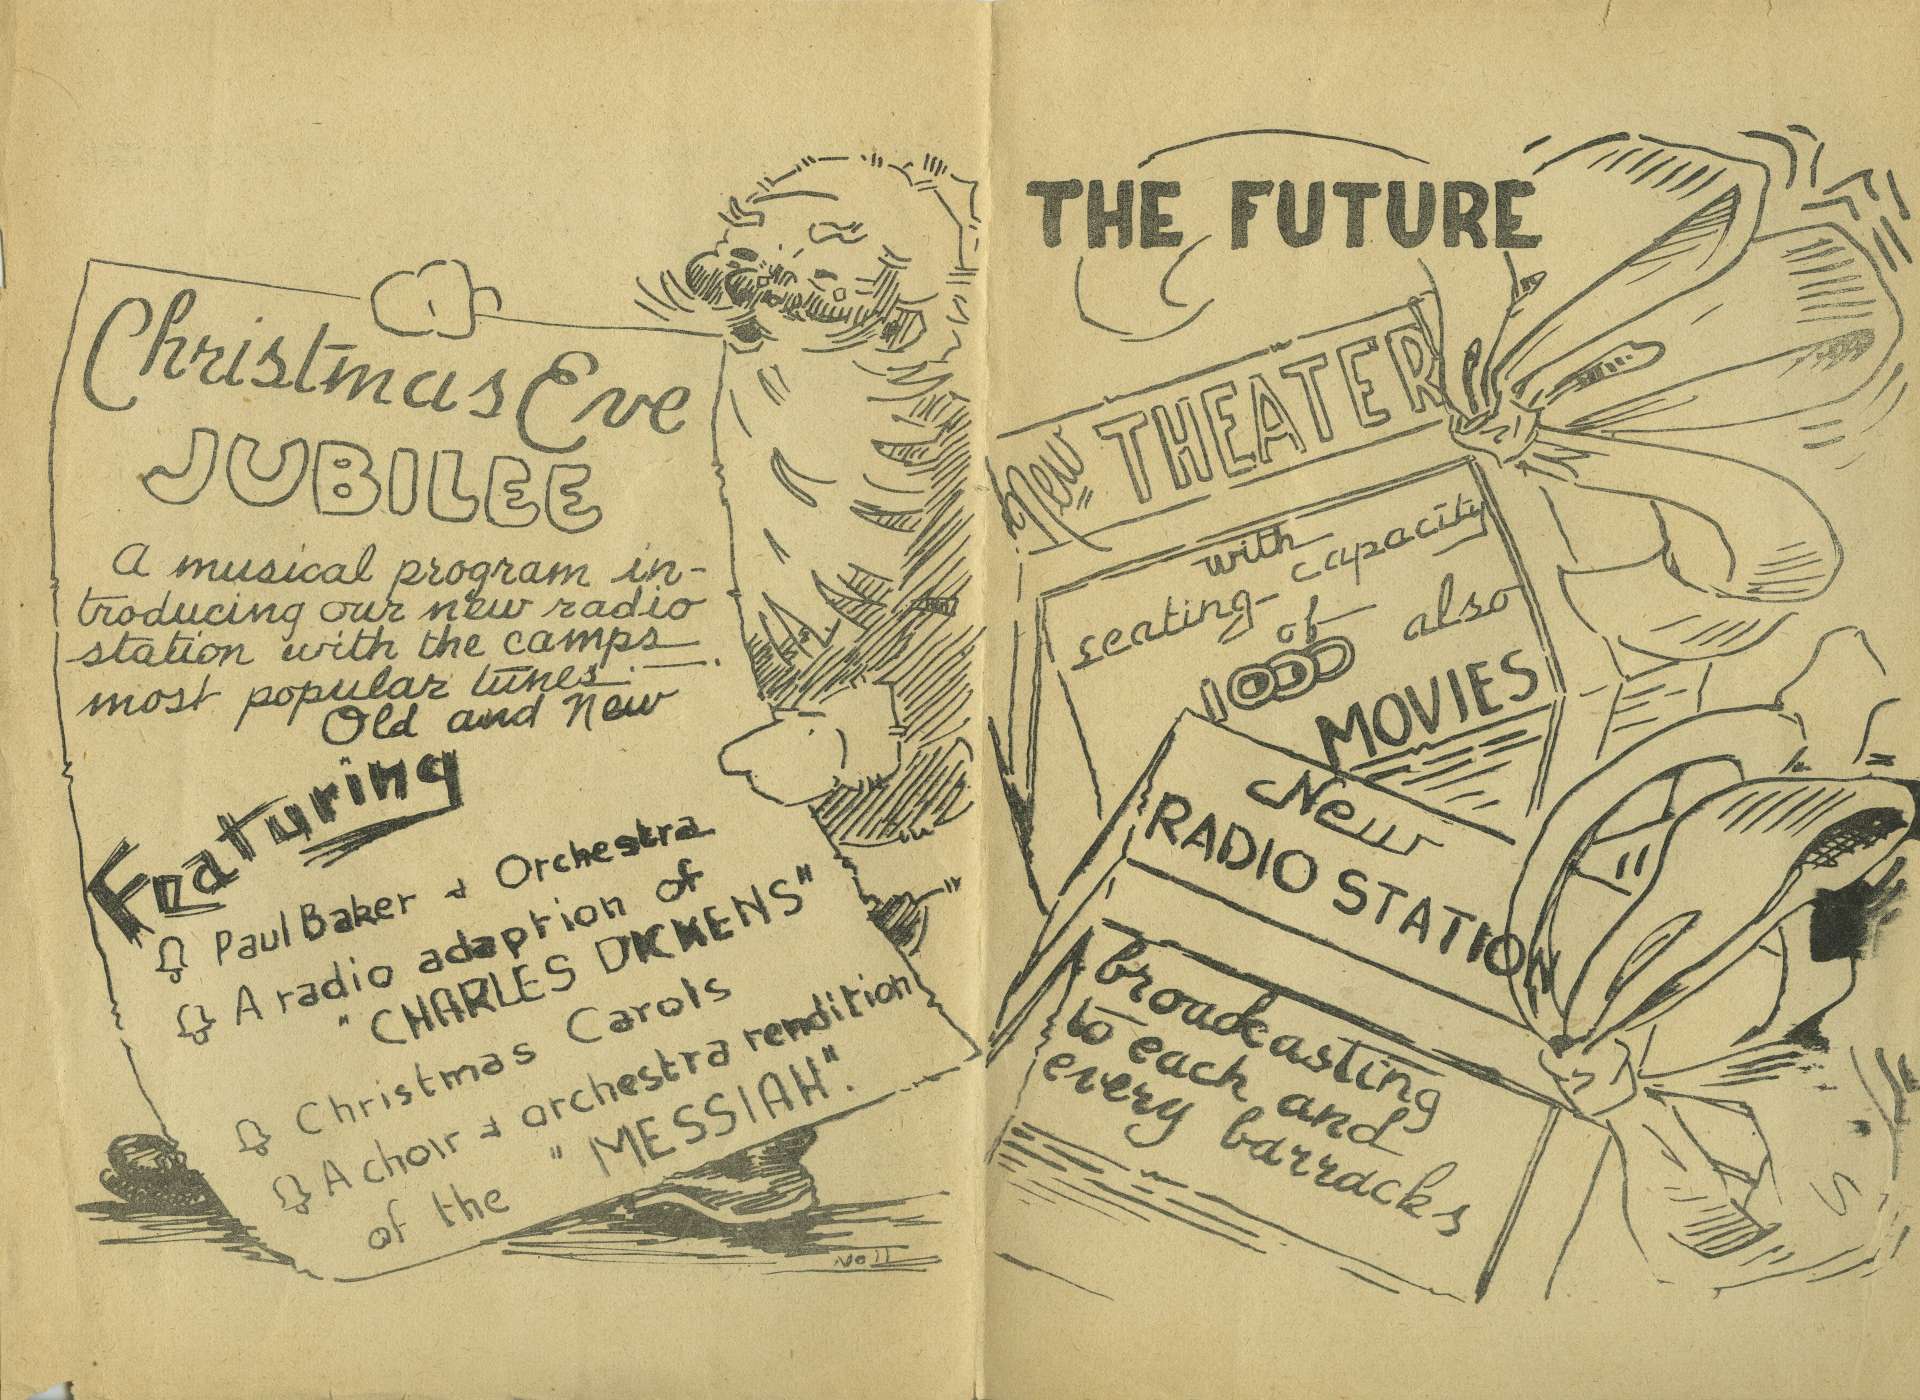 Christmas Eve
JUBILEE
A musical program in-
troducing our new radio
station with the camps
most popular tunes
Old and New
Featuring
Paul Baker & Orchestra
A radio adaption of
"CHARLES DICKENS"
Christmas Carols
A choir & orchestra rendition
of the "MESSIAH".
THE FUTURE
New THEATER
with
seating capacity
of 1000 also
MOVIES
New
RADIO STATION
broadcasting
to each and
every barracks